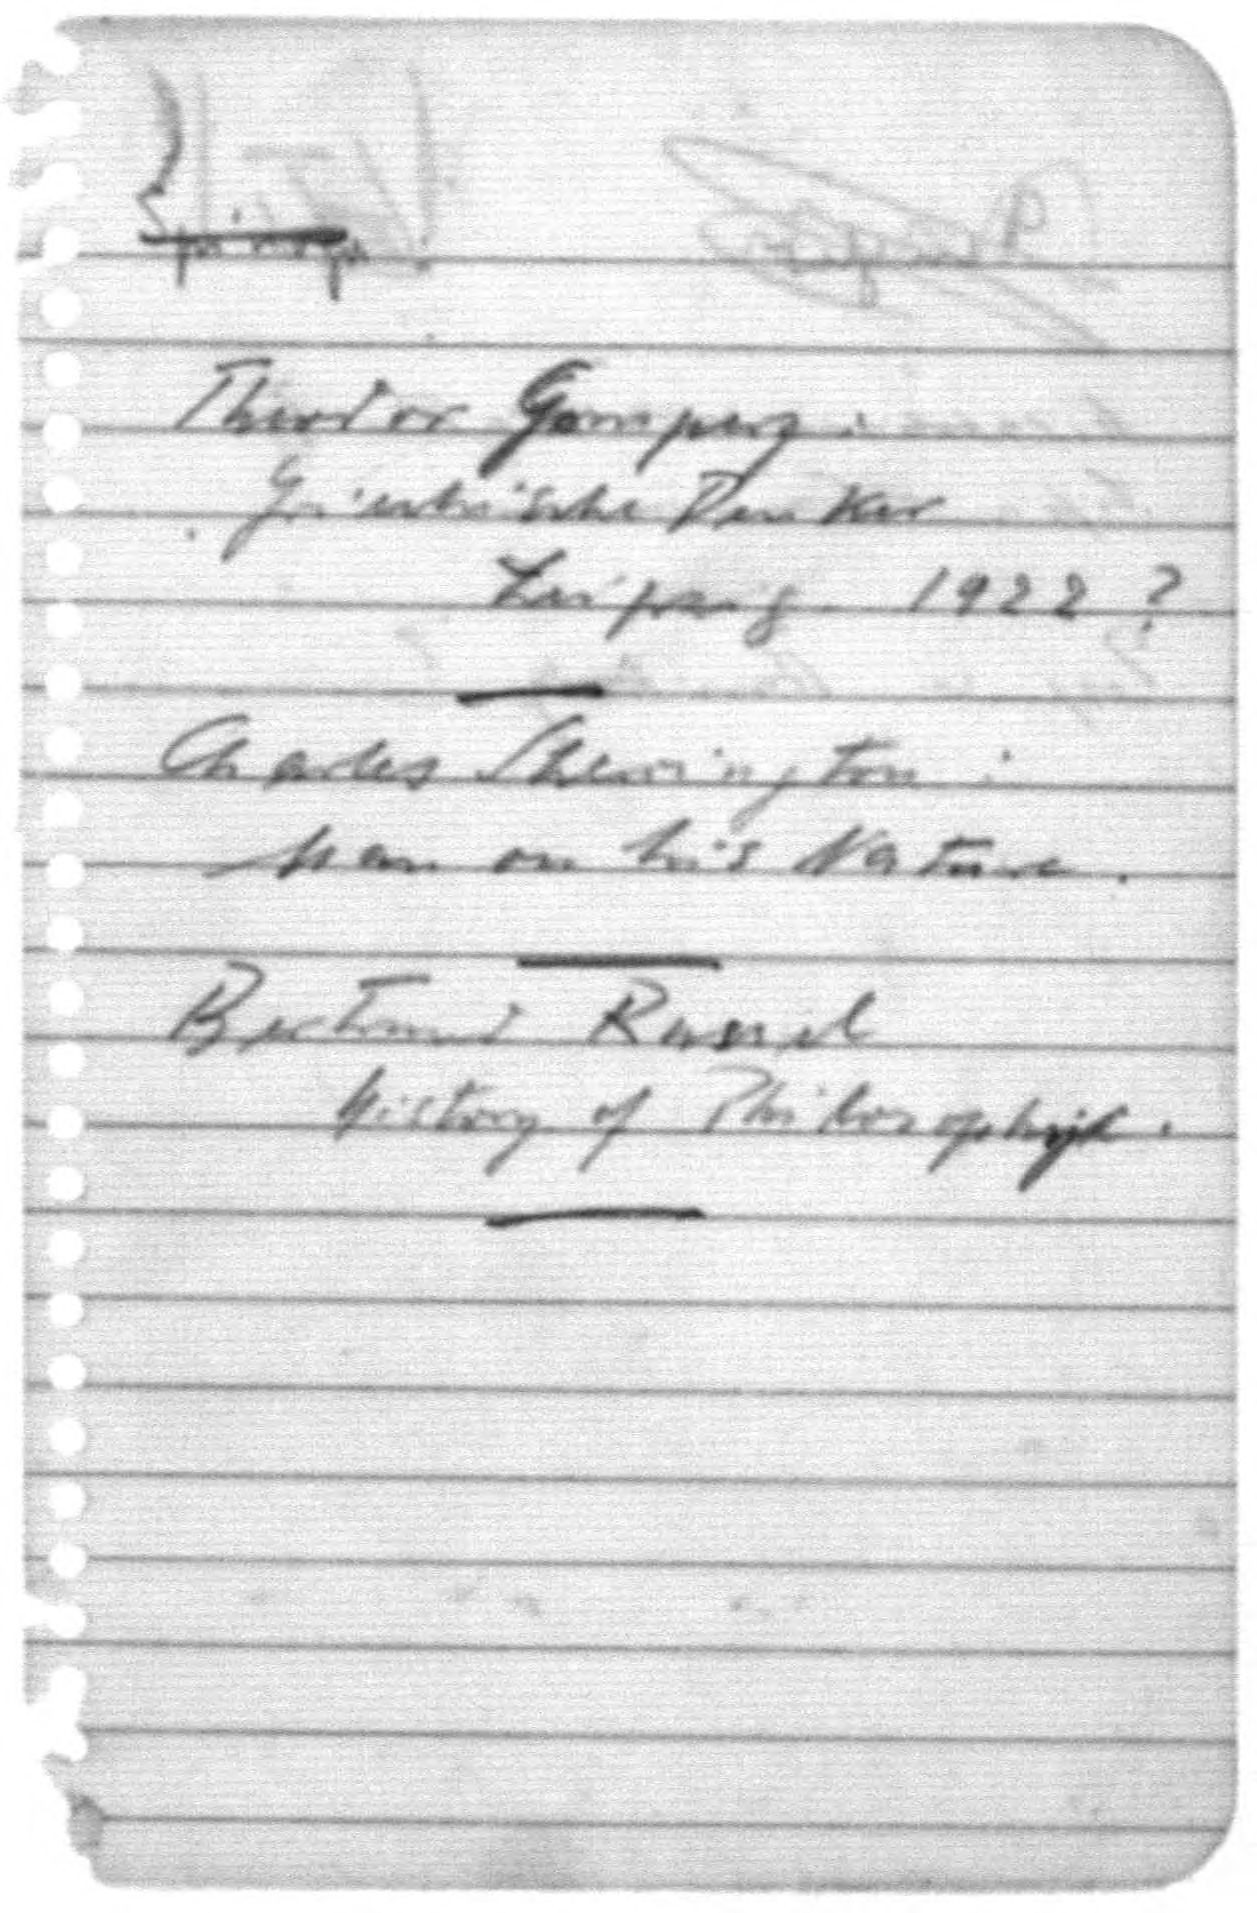 Theodor Gomperz :
Griechische Denker
Leipzig 1922 ?
Charles Sherrington :
Man on his Nature .
Bertrand Russel
History of Philosophy .